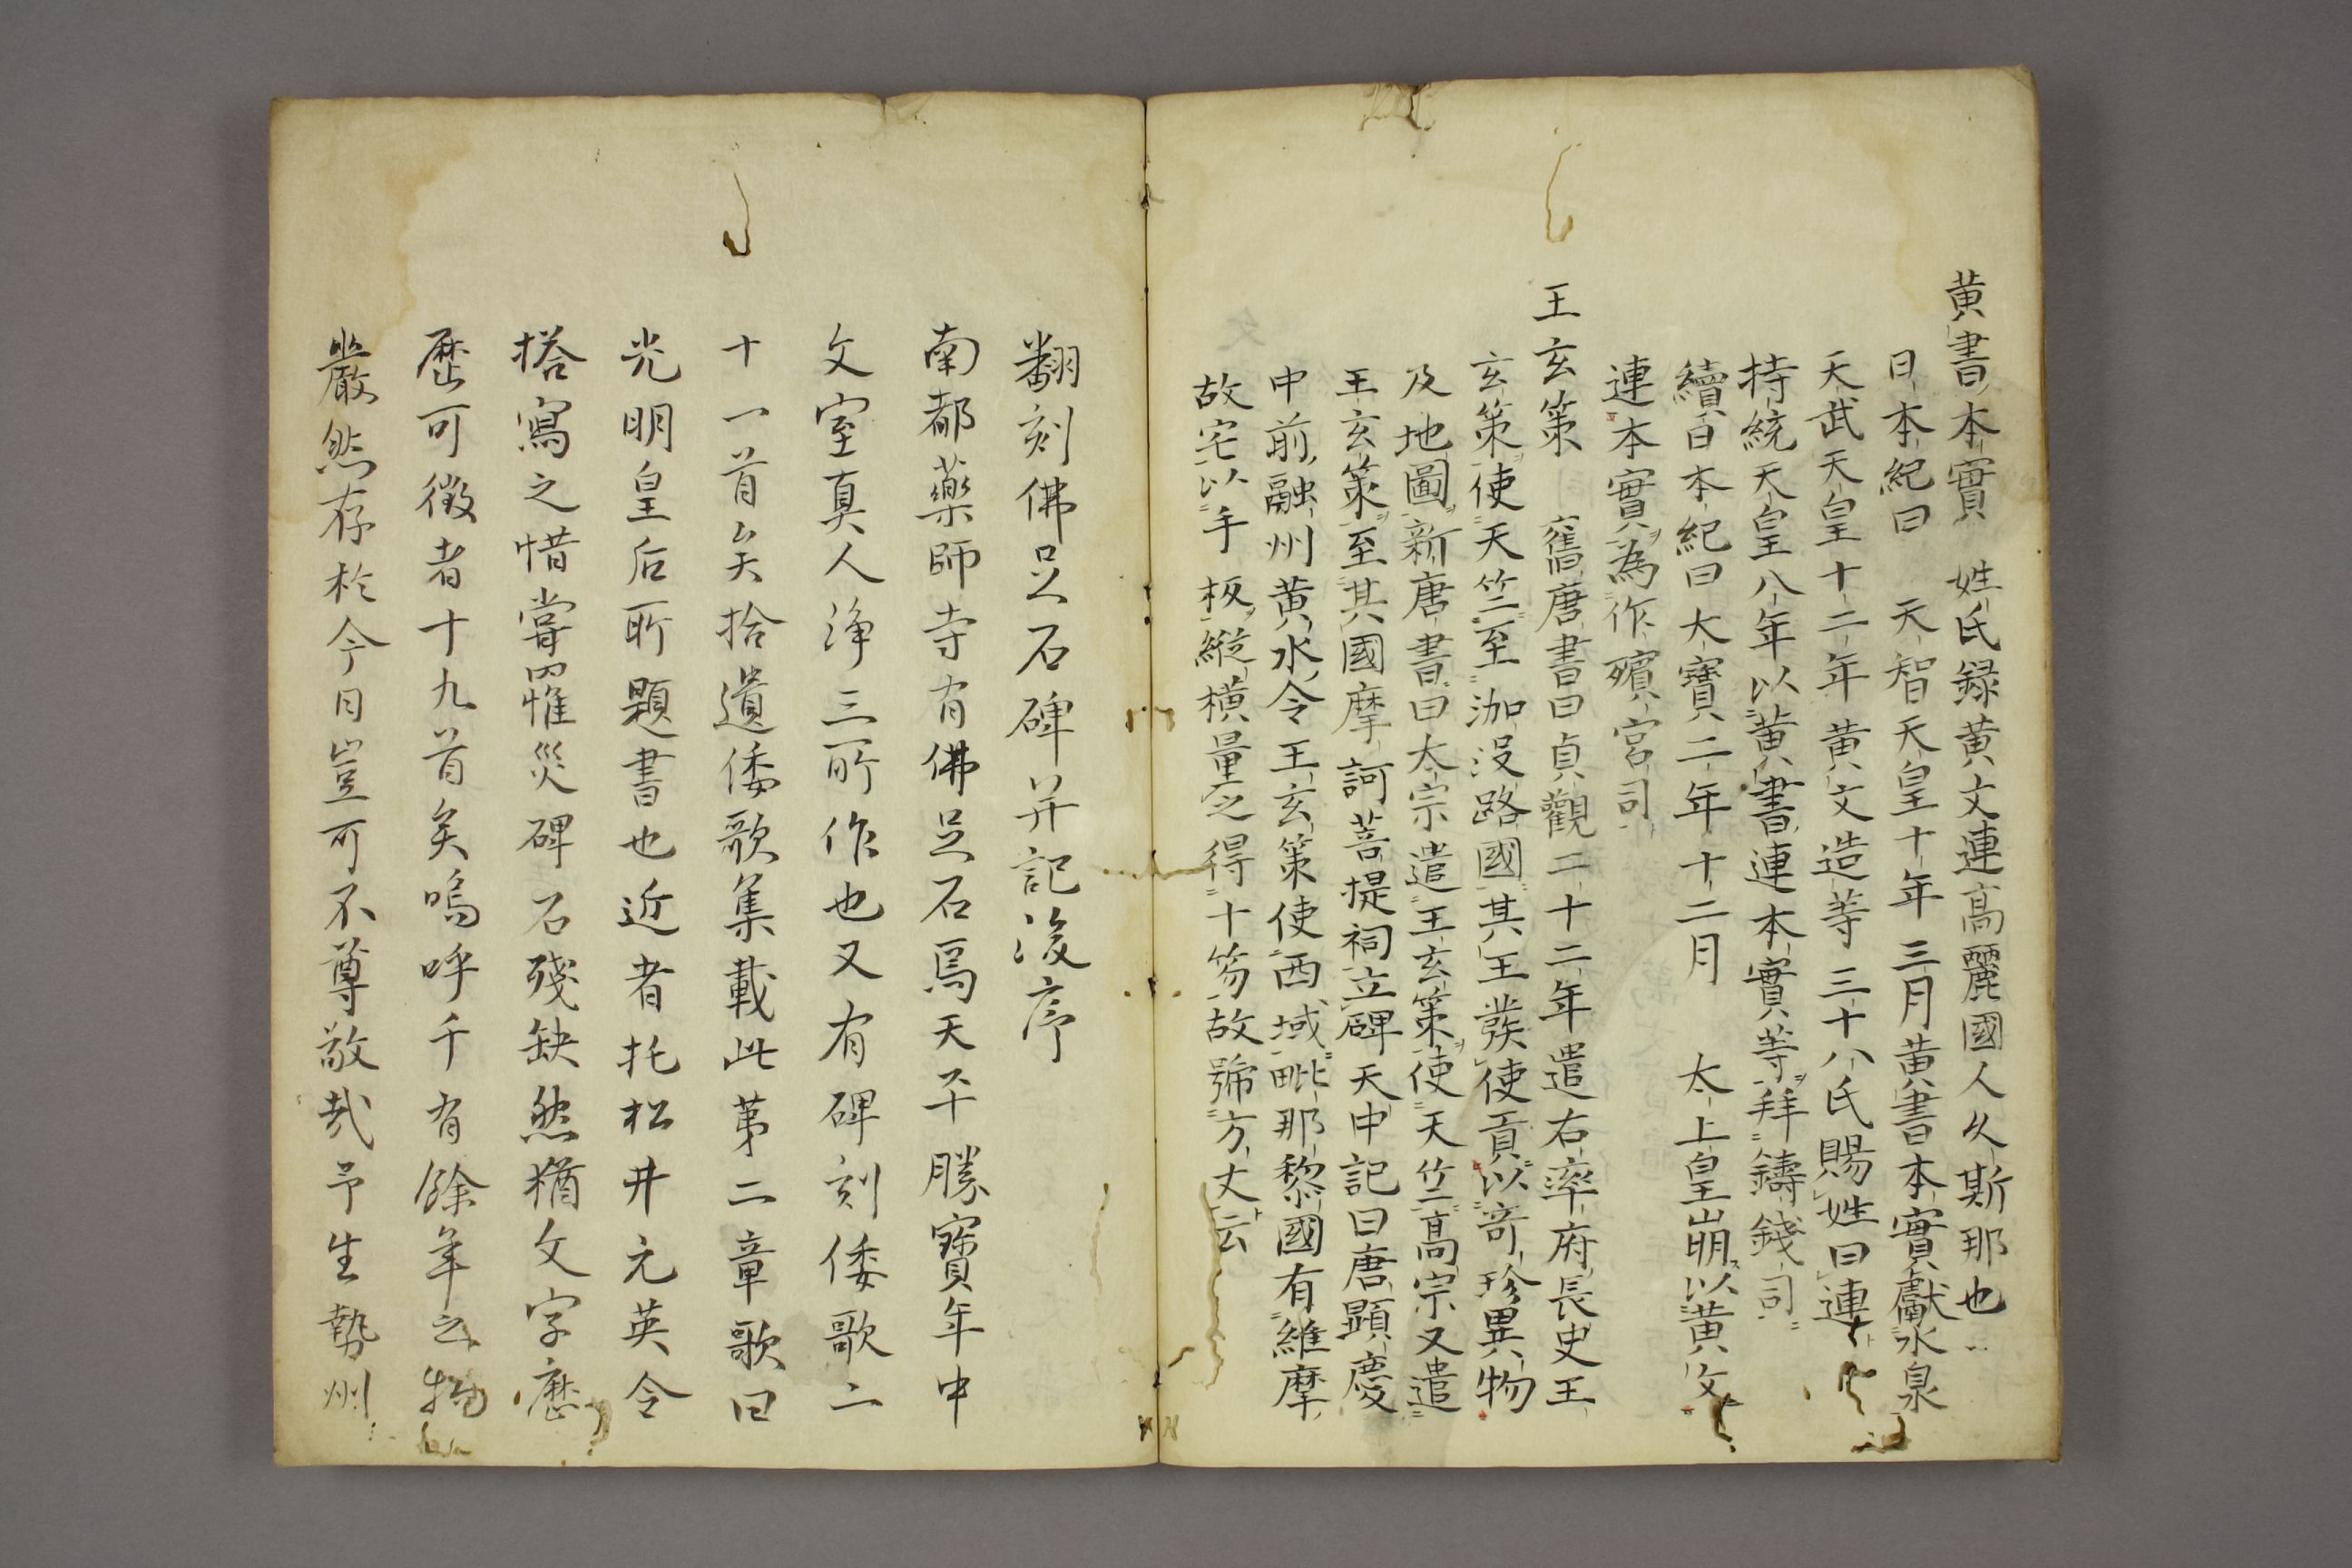 黄書本實 姓氏録黄文連高麗國人久斯那也
日本紀曰 天智天皇十年三月黄書本實獻水泉
天武天皇十二年黄文造等三十八氏賜姓曰連
持統天皇八年以黄書連本實等拜鑄錢司
續日本紀曰大寶二年十二月 太上皇崩以黄文
連本實為作殯宮司
王玄策 舊唐書曰貞觀二十二年遣右率府長史王
玄策使天竺至泇沒路國其王發使貢以奇珍異物
及地圖新唐書曰太宗遣王玄策使天竺高宗又遣
王玄策至其國摩訶菩提祠立碑天中記曰唐顯慶
中前融州黄水令王玄策使西域毗那黎國有維摩
故宅以手板縱横量之得十笏故號方丈云
翻刻佛足石碑并記後序
南都藥師寺有佛足石焉天平勝寶年中
文室真人淨三所作也又有碑刻倭歌二
十一首矣拾遺倭歌集載此第二章歌曰
光明皇后所題書也近者托松井元英令
搭寫之惜嘗罹災碑石殘缺然猶文字歷
歷可徵者十九首矣嗚呼千有餘年之物
巖然存於今日豈可不尊敬哉予生勢州